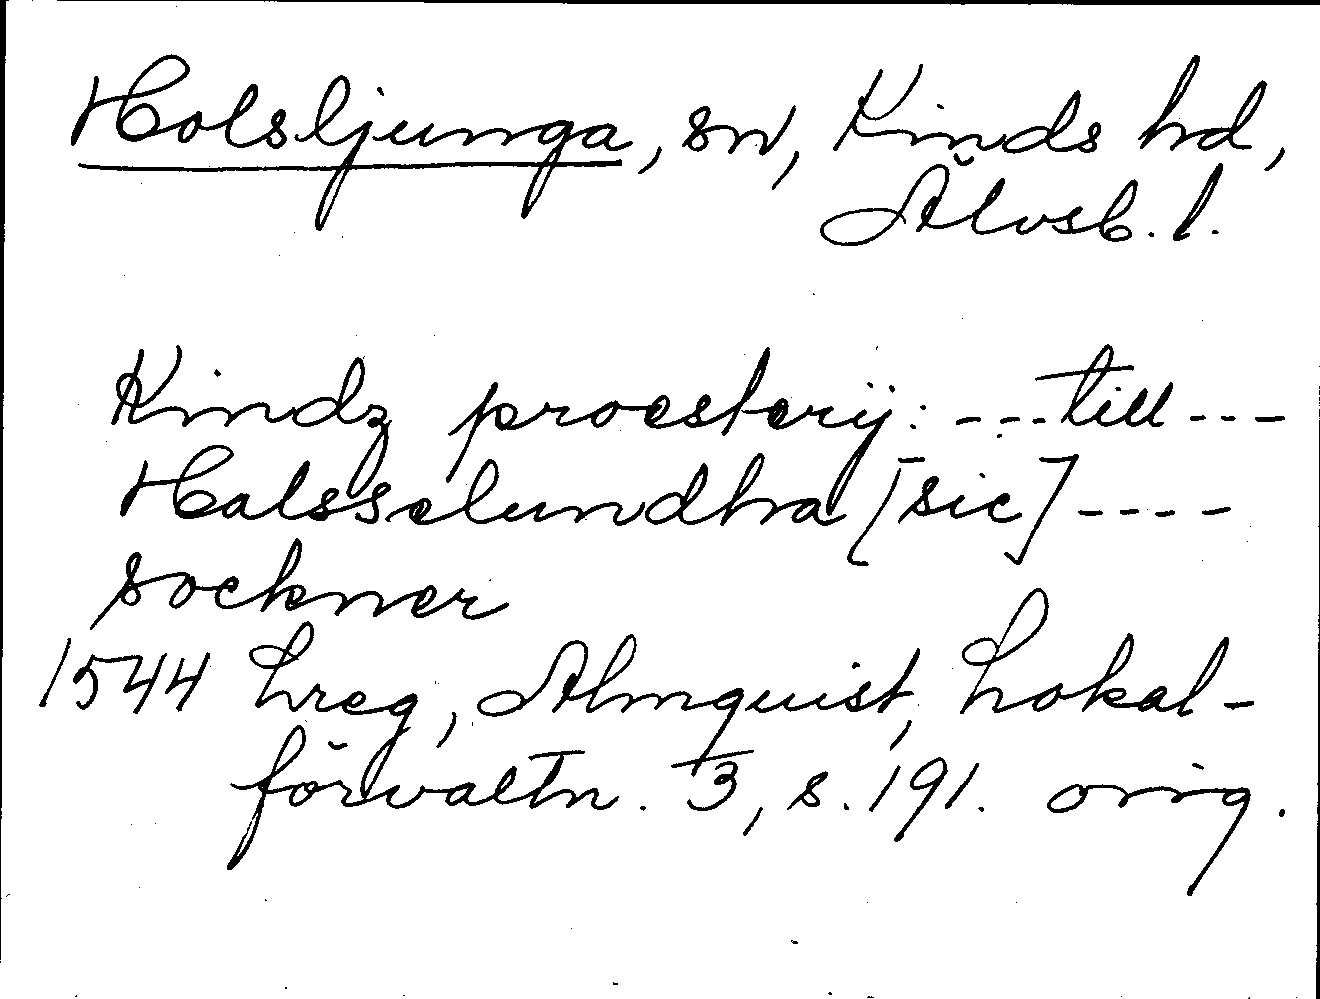 Holsljunga, sn, Kinds hd,
Älvsb. l.
Kindz proesterij: ---till---
Halsselundha [sic]----
sockner
1544 Lreg, Almquist, Lokal-
förvaltn. 3, s. 191. orig.